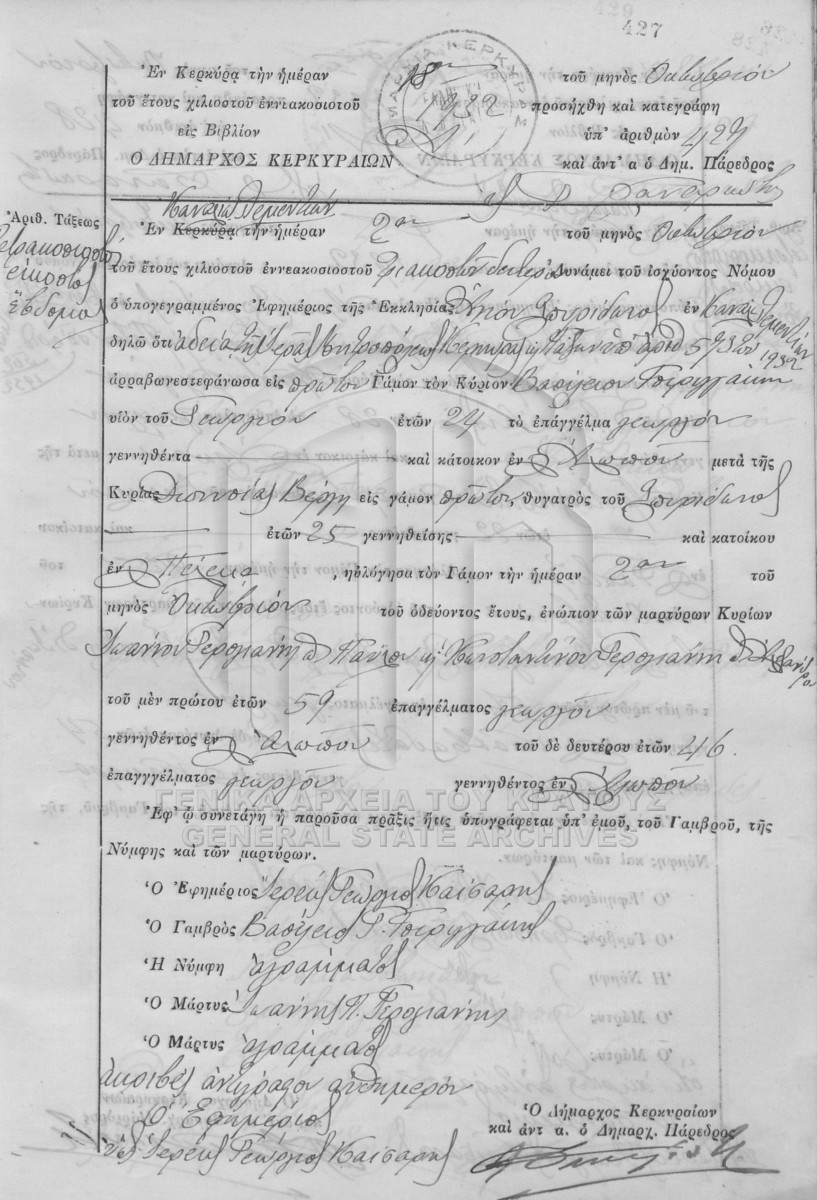 427
Ἐν Κερκύρᾳ τὴν ἡμέραν 18ην τοῦ μηνὸς Ὀκτωβρίου
τοῦ ἔτους χιλιοστοῦ ἐννεακοσιοτοῦ 1932 προσήχθη καὶ κατεγράφη
εἰς Βιβλίον Δ΄ ὑπ' ἀριθμὸν 427
Ο ΔΗΜΑΡΧΟΣ ΚΕΡΚΥΡΑΙΩΝ καὶ ἀντ' α ὁ Δημ. Πάρεδρος
Ἀριθ. Τάξεως
Τετρακοσιοστὸς
εἰκοστὸς
ἕβδομος
Ἐν Κερκύρᾳ τὴν ἡμέραν 2αν τοῦ μηνὸς Ὀκτωβρίου
τοῦ ἔτους χιλιοστοῦ ἐννεακοσιοστοῦ τριακοστοῦ δευτέρου Δυνάμει τοῦ ἰσχύοντος Νόμου
ὁ ὑπογεγραμμένος Ἐφημέριος τῆς Ἐκκλησίας Ἁγίου Σπυρίδωνος ἐν
δηλῶ ὅτι ἀδείᾳ τῆς Ἱερᾶς Μητροπόλεως Κερκύρας καὶ Παξῶν ὑπ' ἀριθ 573 1932
ἀρραβωνεστεφάνωσα εἰς πρῶτον Γάμον τὸν Κύριον Βασίλειον
υἱὸν τοῦ Γεωργίου ἐτῶν 24 τὸ ἐπάγγέλμα γεωργόν
γεννηθέντα καὶ κάτοικον ἐν Ἀλωποῦ μετὰ τῆς
Κυρίας Διονυσίας Βέργη εἰς γάμον πρῶτον, θυγατρὸς τοῦ Σπυρίδωνος
ἐτῶν 25 γεννηθείσης καὶ κατοίκου
ἐν Πέλεκα, ηὐλόγησα τὸν Γάμον τὴν ἡμέραν 2αν τοῦ
μηνὸς Ὀκτωβρίου τοῦ ὁδεύοντος ἔτους, ἐνώπιον τῶν μαρτύρων Κυρίων
Ἰωάννου Γερογιάννη Παύλου καὶ Κωνσταντίνου Γερογιάννη
τοῦ μὲν πρώτου ἐτῶν 59 ἐπαγγέλματος γεωργοῦ
γεννηθέντος ἐν Ἀλωποῦ τοῦ δὲ δευτέρου ἐτῶν 46
ἐπαγγγέλματος γεωργοῦ γεννηθέντος ἐν Ἀλωποῦ
ΓΕΝΙΚΑ ΑΡΧΕΙΑ ΤΟΥ ΚΡΑΤΟΥΣ
GENERAL STATE ARCHIVES
Ἐφ' ᾧ συνετάγη ἡ παροῦσα πρᾶξις ἥτις ὑπογράφεται ὑπ' ἐμοῦ, τοῦ Γαμβροῦ, τῆς
Νύμφης καὶ τῶν μαρτύρων.
Ὁ Ἐφημέριος Ἱερεὺς Γεώργιος Καίσαρης
Ὁ Γαμβρὸς Βασίλειος Γ.
Ἡ Νύμφη ἀγράμματος
Ὁ Μάρτυς Ἰωάννης Π. Γερογιάννης
Ὁ Μάρτυς ἀγράμματος
ἀκριβὲς ἀντίγραφον αὐθημερόν
Ὁ Ἐφημέριος
Ἱερεὺς Γεώργιος Καίσαρης
Ὁ Δήμαρχος Κερκυραίων
καὶ ἀντ α. ὁ Δημαρχ. Πάρεδρος